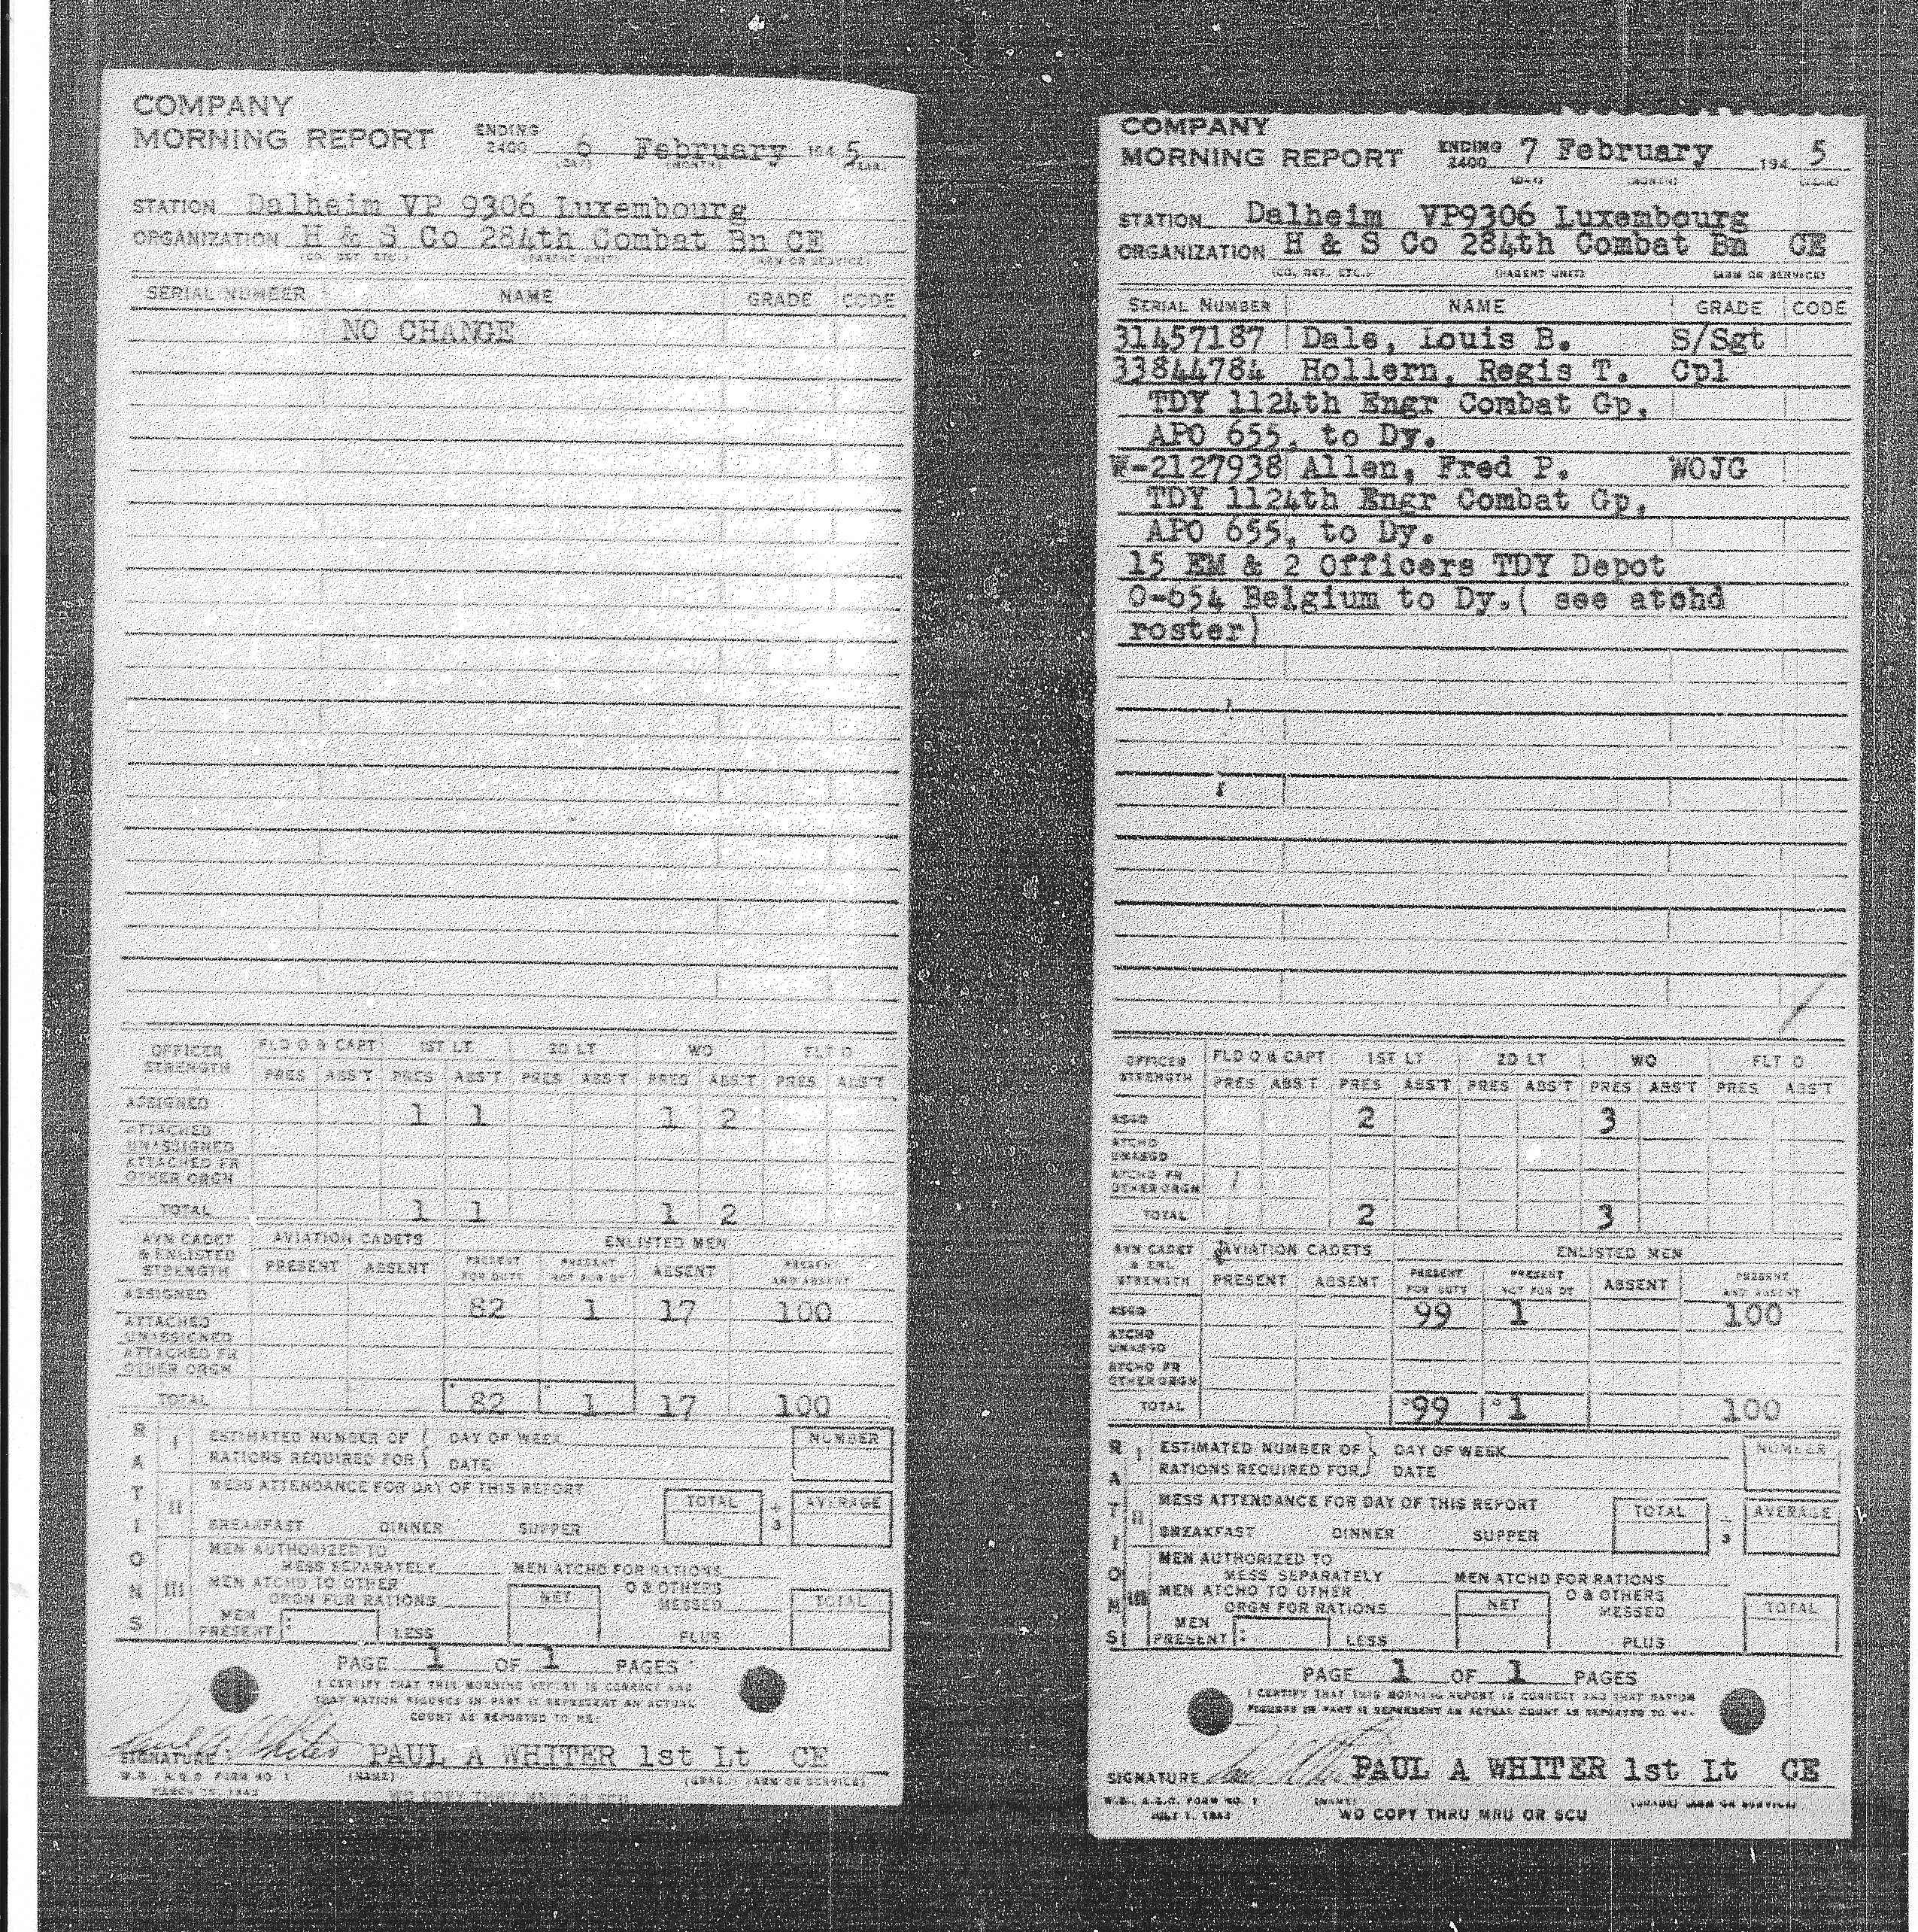 COMPANY
MORNING REPORT ENDING 2400 6 February 194 5
(DAY) (MONTH) (YEAR)
STATION Dalheim VP 9306 Luxembourg
ORGANIZATION H & S Co 284th Combat Bn CE
(CO. DET. ETC.) (PARENT UNIT) (ARM OR SERVICE)
SERIAL NUMBER NAME GRADE CODE
NO CHANGE
OFFICER STRENGTH FLD O & CAPT 1ST LT 2D LT WO FLT O
PRES ABS'T PRES ABS'T PRES ABS'T PRES ABS'T PRES ABS'T
ASSIGNED 1 1 1 2
ATTACHED UNASSIGNED
ATTACHED FR OTHER ORGN
TOTAL 1 1 1 2
AVN CADET & ENLISTED STRENGTH AVIATION CADETS ENLISTED MEN
PRESENT ABSENT PRESENT FOR DUTY PRESENT NOT FOR DY ABSENT PRESEN AND ABSENT
ASSIGNED 82 1 17 100
ATTACHED UNASSIGNED
ATTACHED FR OTHER ORGN
TOTAL 82 1 17 100
RATIONS
I ESTIMATED NUMBER OF DAY OF WEEK NUMBER
RATIONS REQUIRED FOR DATE
II MESS ATTENDANCE FOR DAY OF THIS REPORT TOTAL ÷ 3 AVERAGE
BREAKFAST DINNER SUPPER
III MEN AUTHORIZED TO
MESS SEPARATELY MEN ATCHD FOR RATIONS
MEN ATCHD TO OTHER NET O & OTHERS TOTAL
ORGN FOR RATIONS MESSED
MEN PRESENT : LESS PLUS
PAGE 1 OF 1 PAGES
I CERTIFY THAT THIS MORNING REPORT IS CORRECT AND
THAT RATION FIGURES IN PART II REPRESENT AN ACTUAL
COUNT AS REPORTED TO ME.
Paul A Whiter
SIGNATURE PAUL A WHITER 1st Lt CE
W.D., A.G.O. FORM NO. 1 (NAME) (GRADE) (ARM OR SERVICE)
MARCH 15, 1943
COMPANY
MORNING REPORT ENDING 2400 7 February 194 5
(DAY) (MONTH) (YEAR)
STATION Dalheim VP9306 Luxembourg
ORGANIZATION H & S Co 284th Combat Bn CE
(CO. DET. ETC.) (PARENT UNIT) (ARM OR SERVICE)
SERIAL NUMBER NAME GRADE CODE
31457187 Dale, Louis B. S/Sgt
33844784 Hollern, Regis T. Cpl
TDY 1124th Engr Combat Gp,
APO 655, to Dy.
W-2127938 Allen, Fred P. WOJG
TDY 1124th Engr Combat Gp,
APO 655, to Dy.
15 EM & 2 Officers TDY Depot
0-654 Belgium to Dy.( see atchd
roster)
OFFICER STRENGTH FLD O & CAPT 1ST LT 2D LT WO FLT O
PRES ABS'T PRES ABS'T PRES ABS'T PRES ABS'T PRES ABS'T
ASGD 2 3
ATCHD UNASGD
ATCHD FR OTHER ORGN
TOTAL 2 3
AVN CADET & ENL STRENGTH AVIATION CADETS ENLISTED MEN
PRESENT ABSENT PRESENT FOR DUTY PRESENT NOT FOR DY ABSENT PRESENT AND ABSENT
ASGD 99 1 100
ATCHD UNASGD
ATCHD FR OTHER ORGN
TOTAL 99 1 100
RATIONS
I ESTIMATED NUMBER OF DAY OF WEEK NUMBER
RATIONS REQUIRED FOR DATE
II MESS ATTENDANCE FOR DAY OF THIS REPORT TOTAL ÷ 3 AVERAGE
BREAKFAST DINNER SUPPER
III MEN AUTHORIZED TO
MESS SEPARATELY MEN ATCHD FOR RATIONS
MEN ATCHD TO OTHER NET O & OTHERS TOTAL
ORGN FOR RATIONS MESSED
MEN PRESENT : LESS PLUS
PAGE 1 OF 1 PAGES
I CERTIFY THAT THIS MORNING REPORT IS CORRECT AND THAT RATION
FIGURES IN PART II REPRESENT AN ACTUAL COUNT AS REPORTED TO ME.
SIGNATURE PAUL A WHITER 1st Lt CE
W.D., A.G.O. FORM NO. 1 (NAME) (GRADE) (ARM OR SERVICE)
JULY 1, 1943 WD COPY THRU MRU OR SCU